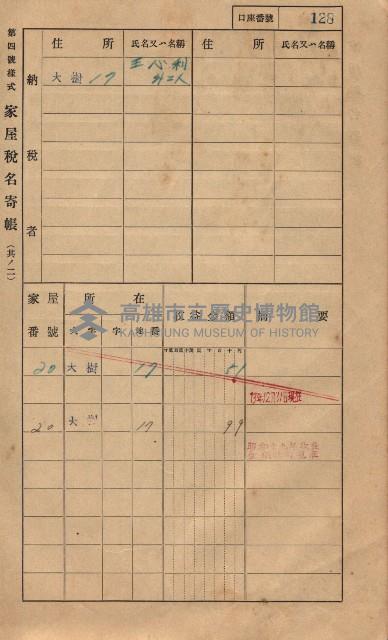 口座番號 128
第四號樣式 家屋稅名寄帳 (其ノ二)
住所 氏名又ハ名稱 住所 氏名又ハ名稱
納稅者
大樹 17 王心利
外二人
家屋番號 所在 收益金額 摘要
大字 字 地番
高雄市立歷史博物館
KAOHSIUNG MUSEUM OF HISTORY
20 大樹 17 51
20 大樹 17 99